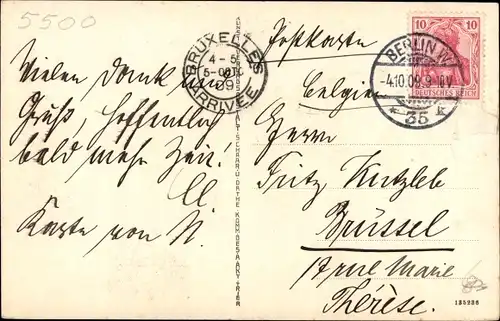 5500
Vielen Dank
Gruß, hoffentlich
bald mehr Zeit!
Karte von N.
BRUXELLES
4-5
5-OCT
09
ARRIVÉE
Postkarte
Belgien
Herrn
Fritz Kutzleb
Brüssel
17 rue Marie
Thérèse.
10 10
DEUTSCHES REICH
BERLIN W.
-4.10.09.9-10V
* 35 k
135236